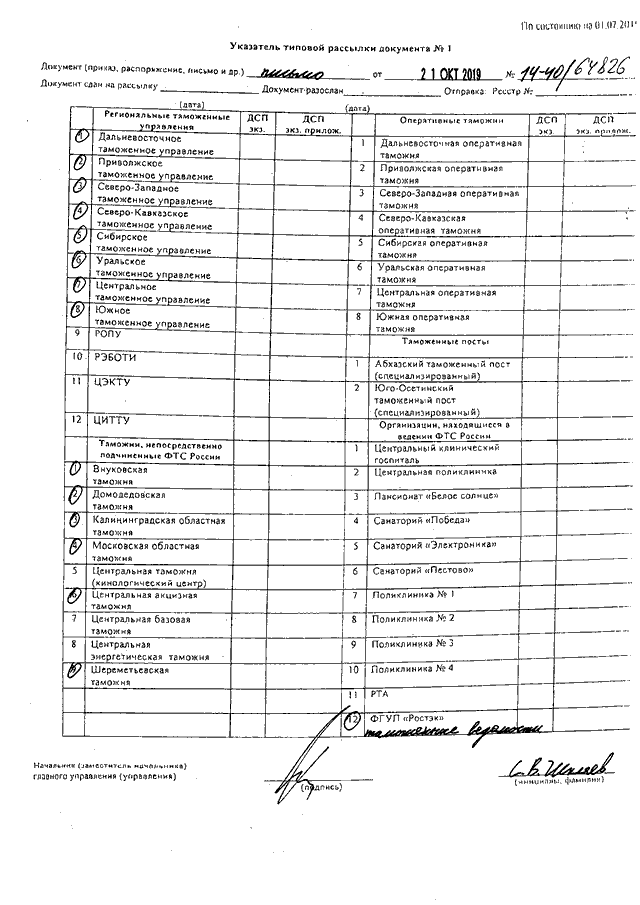 По состоянию на 01.07.2019
Указатель типовой рассылки документа № 1
Документ (приказ, распоряжение, письмо и др.) письмо от 21 ОКТ 2019 № 14-40/64826
Документ сдан на рассылку Документ разослан Отправка: Реестр №
(дата) (дата)
Региональные таможенные управления ДСП экз. ДСП экз. прилож. Оперативные таможни ДСП экз. ДСП экз. прилож.
1 Дальневосточное
таможенное управление
1 Дальневосточная оперативная
таможня
2 Приволжское
таможенное управление
2 Приволжская оперативная
таможня
3 Северо-Западное
таможенное управление
3 Северо-Западная оперативная
таможня
4 Северо-Кавказское
таможенное управление
4 Северо-Кавказская
оперативная таможня
5 Сибирское
таможенное управление
5 Сибирская оперативная
таможня
6 Уральское
таможенное управление
6 Уральская оперативная
таможня
7 Центральное
таможенное управление
7 Центральная оперативная
таможня
8 Южное
таможенное управление
8 Южная оперативная
таможня
9 РОПУ
Таможенные посты
10 РЭБОТИ
1 Абхазский таможенный пост
(специализированный)
11 ЦЭКТУ
2 Юго-Осетинский
таможенный пост
(специализированный)
12 ЦИТТУ
Организации, находящиеся в
ведении ФТС России
Таможни, непосредственно
подчиненные ФТС России
1 Центральный клинический
госпиталь
1 Внуковская
таможня
2 Центральная поликлиника
2 Домодедовская
таможня
3 Пансионат «Белое солнце»
3 Калининградская областная
таможня
4 Санаторий «Победа»
4 Московская областная
таможня
5 Санаторий «Электроника»
5 Центральная таможня
(кинологический центр)
6 Санаторий «Пестово»
6 Центральная акцизная
таможня
7 Поликлиника № 1
7 Центральная базовая
таможня
8 Поликлиника № 2
8 Центральная
энергетическая таможня
9 Поликлиника № 3
9 Шереметьевская
таможня
10 Поликлиника № 4
11 РТА
12 ФГУП «Ростэк»
таможенные ведомости
Начальник (заместитель начальника)
главного управления (управления)
(подпись)
С.В. Шкляев
(инициалы, фамилия)